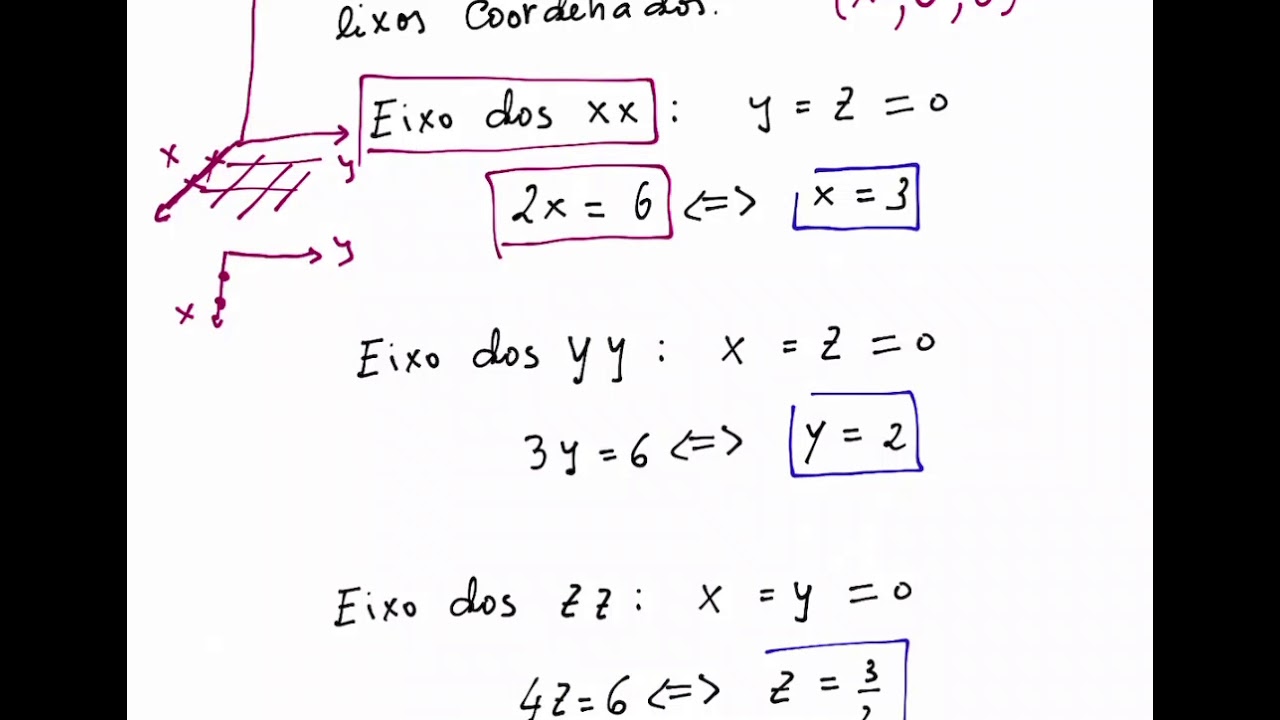 eixos coordenados.
Eixo dos xx : y = z = 0
x
y
2x = 6 <=> x = 3
y
x
Eixo dos yy : x = z = 0
3y = 6 <=> y = 2
Eixo dos zz : x = y = 0
4z = 6 <=> z = 3/2